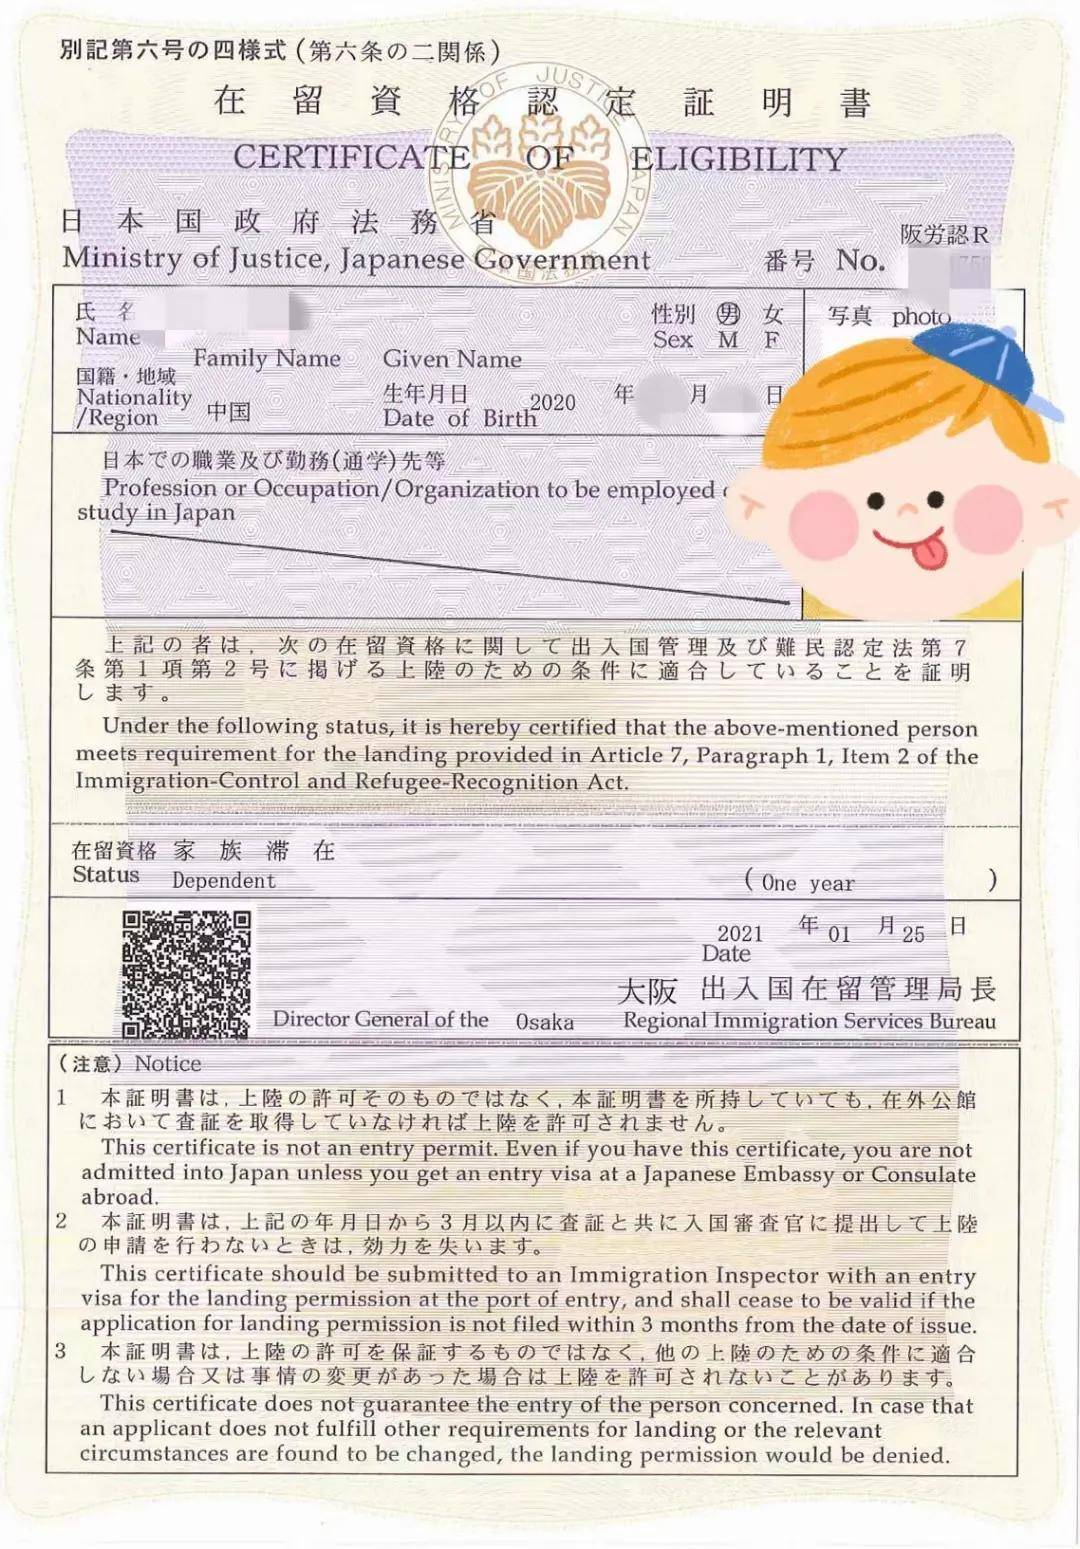 別記第六号の四様式(第六条の二関係)
在留資格認定証明書
CERTIFICATE OF ELIGIBILITY
日本国政府法務省
阪労認R
Ministry of Justice, Japanese Government
番号 No.
MINISTRY OF JUSTICE JAPAN
氏名 性別 男 女 写真 photo
Name Sex M F
Family Name Given Name
国籍・地域 生年月日 2020 年 月 日
Nationality
/Region 中国 Date of Birth
日本での職業及び勤務(通学)先等
Profession or Occupation/Organization to be employed
study in Japan
上記の者は、次の在留資格に関して出入国管理及び難民認定法第7
条第1項第2号に掲げる上陸のための条件に適合していることを証明
します。
Under the following status, it is hereby certified that the above-mentioned person
meets requirement for the landing provided in Article 7, Paragraph 1, Item 2 of the
Immigration-Control and Refugee-Recognition Act.
在留資格 家族滞在
Status Dependent (One year )
2021 年 01 月 25 日
Date
大阪 出入国在留管理局長
Director General of the Osaka Regional Immigration Services Bureau
(注意) Notice
1 本証明書は,上陸の許可そのものではなく,本証明書を所持していても,在外公館
において査証を取得していなければ上陸を許可されません。
This certificate is not an entry permit. Even if you have this certificate, you are not
admitted into Japan unless you get an entry visa at a Japanese Embassy or Consulate
abroad.
2 本証明書は,上記の年月日から3月以内に査証と共に入国審査官に提出して上陸
の申請を行わないときは,効力を失います。
This certificate should be submitted to an Immigration Inspector with an entry
visa for the landing permission at the port of entry, and shall cease to be valid if the
application for landing permission is not filed within 3 months from the date of issue.
3 本証明書は,上陸の許可を保証するものではなく,他の上陸のための条件に適合
しない場合又は事情の変更があった場合は上陸を許可されないことがあります。
This certificate does not guarantee the entry of the person concerned. In case that
an applicant does not fulfill other requirements for landing or the relevant
circumstances are found to be changed, the landing permission would be denied.